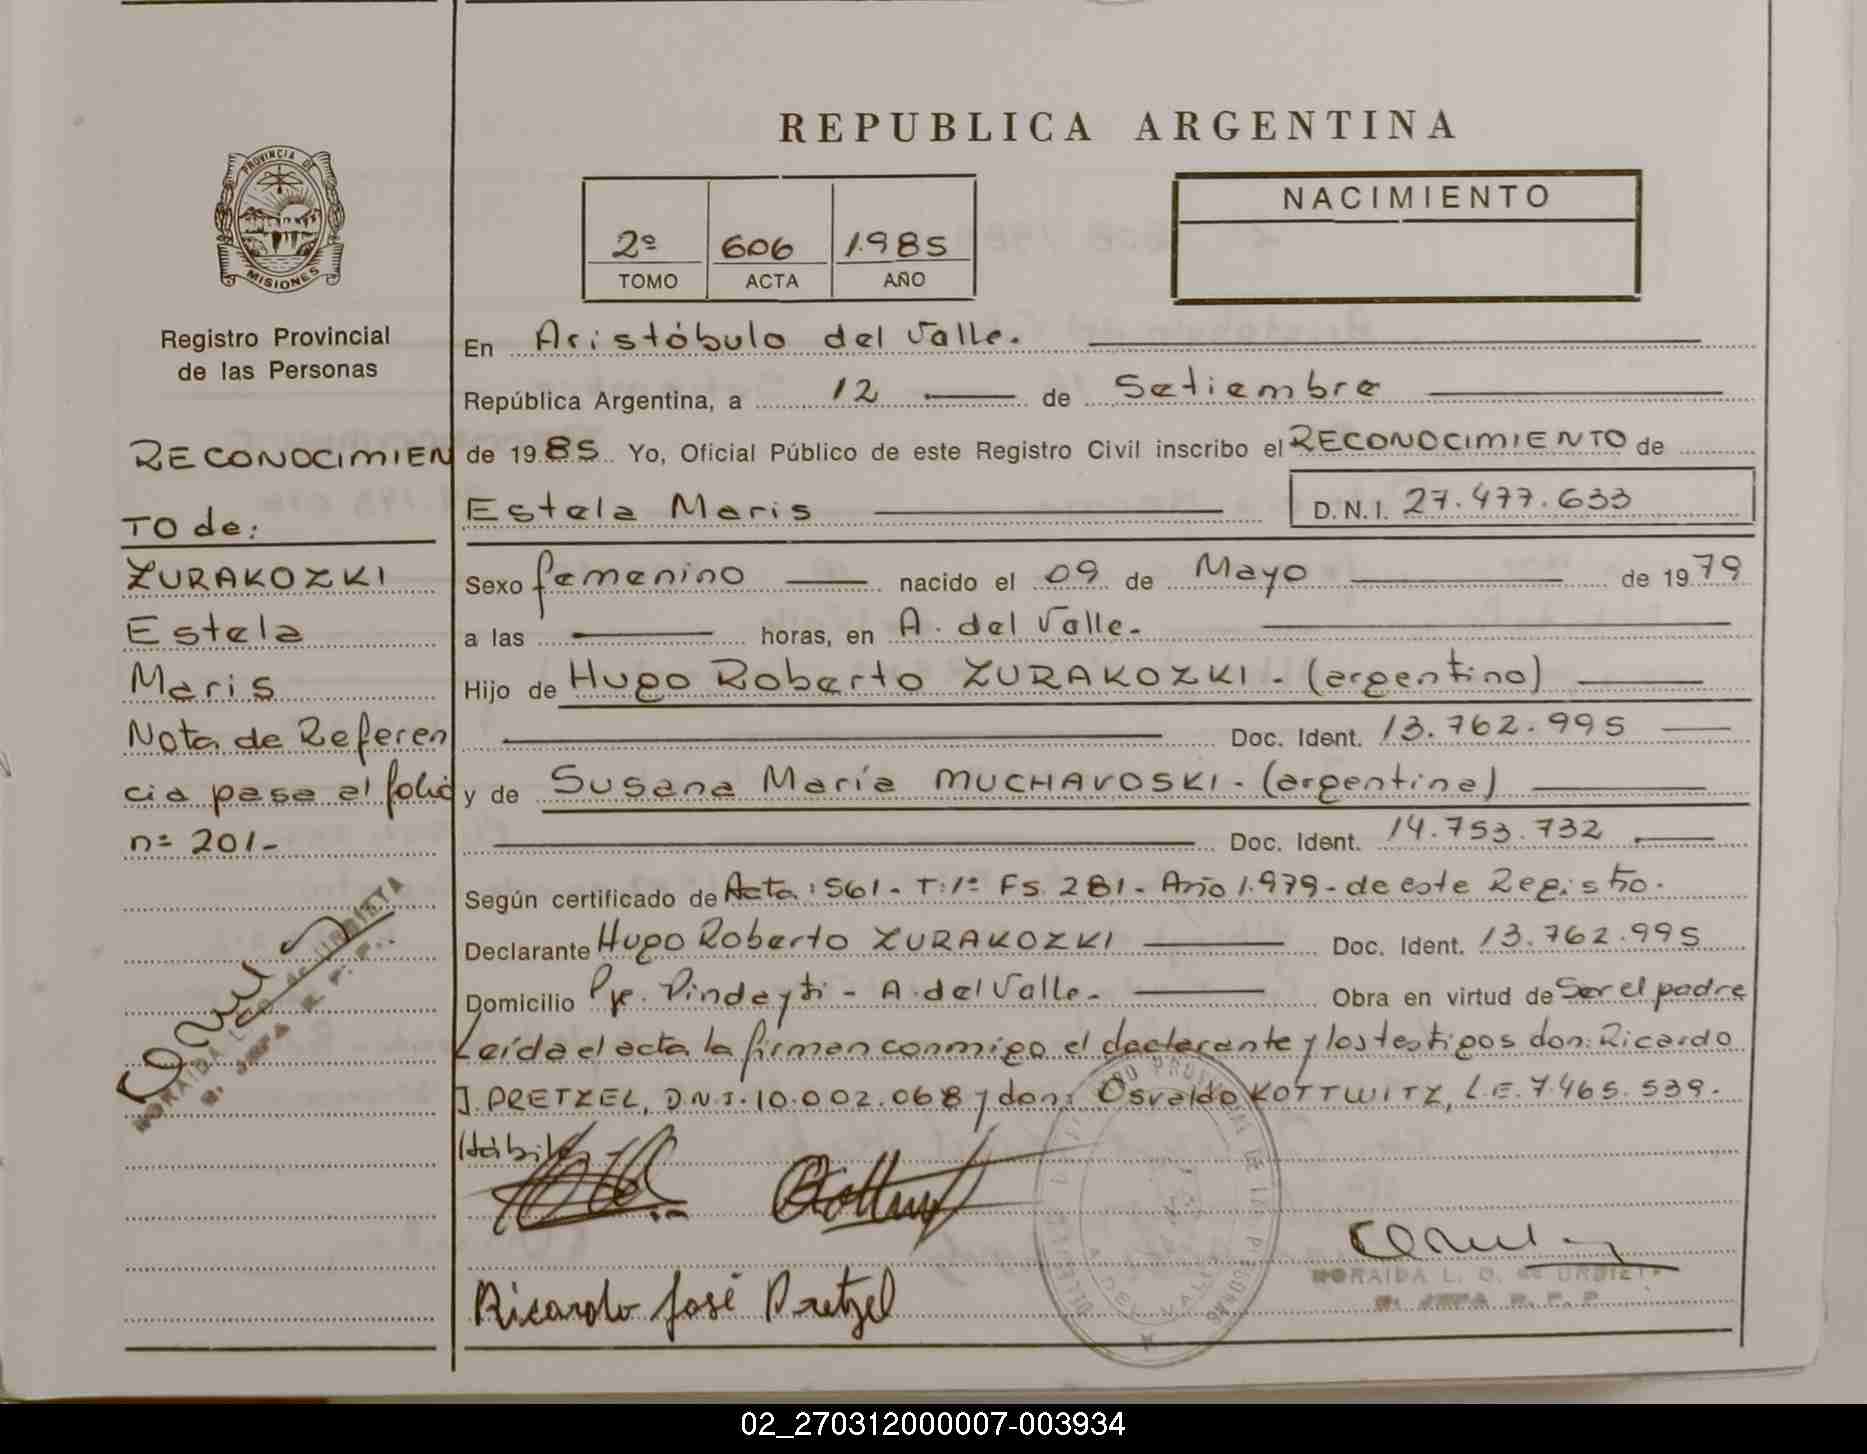 REPUBLICA ARGENTINA
PROVINCIA DE
MISIONES
2º 606 1.985
TOMO ACTA AÑO
NACIMIENTO
Registro Provincial
de las Personas
RECONOCIMIEN
TO de:
ZURAKOZKI
Estela
Maris
Nota de Referen
cia pasa al folio
nº 201-
En Aristóbulo del Valle.
República Argentina, a 12 de Setiembre
de 1985 Yo, Oficial Público de este Registro Civil inscribo el RECONOCIMIENTO de
Estela Maris D.N.I. 27.477.633
Sexo femenino nacido el 09 de Mayo de 1979
a las horas, en A. del Valle.
Hijo de Hugo Roberto ZURAKOZKI - (argentino)
Doc. Ident. 13.762.995
y de Susana María MUCHAVOSKI - (argentina)
Doc. Ident. 14.753.732
Según certificado de Acta: 561 - T: 1º Fs. 281 - Año 1.979 - de este Registro.
Declarante Hugo Roberto ZURAKOZKI Doc. Ident. 13.762.995
Domicilio Pje. Pindayti - A. del Valle. Obra en virtud de Ser el padre
Leída el acta la firman conmigo el declarante y los testigos don: Ricardo
J. PRETZEL, D.N.I. 10.002.068 y don: Osvaldo KOTTWITZ, L.E. 7.465.539.
Hábil
Ricardo José Pretzel
NORAIDA L. O. de URBIETA
02_270312000007-003934